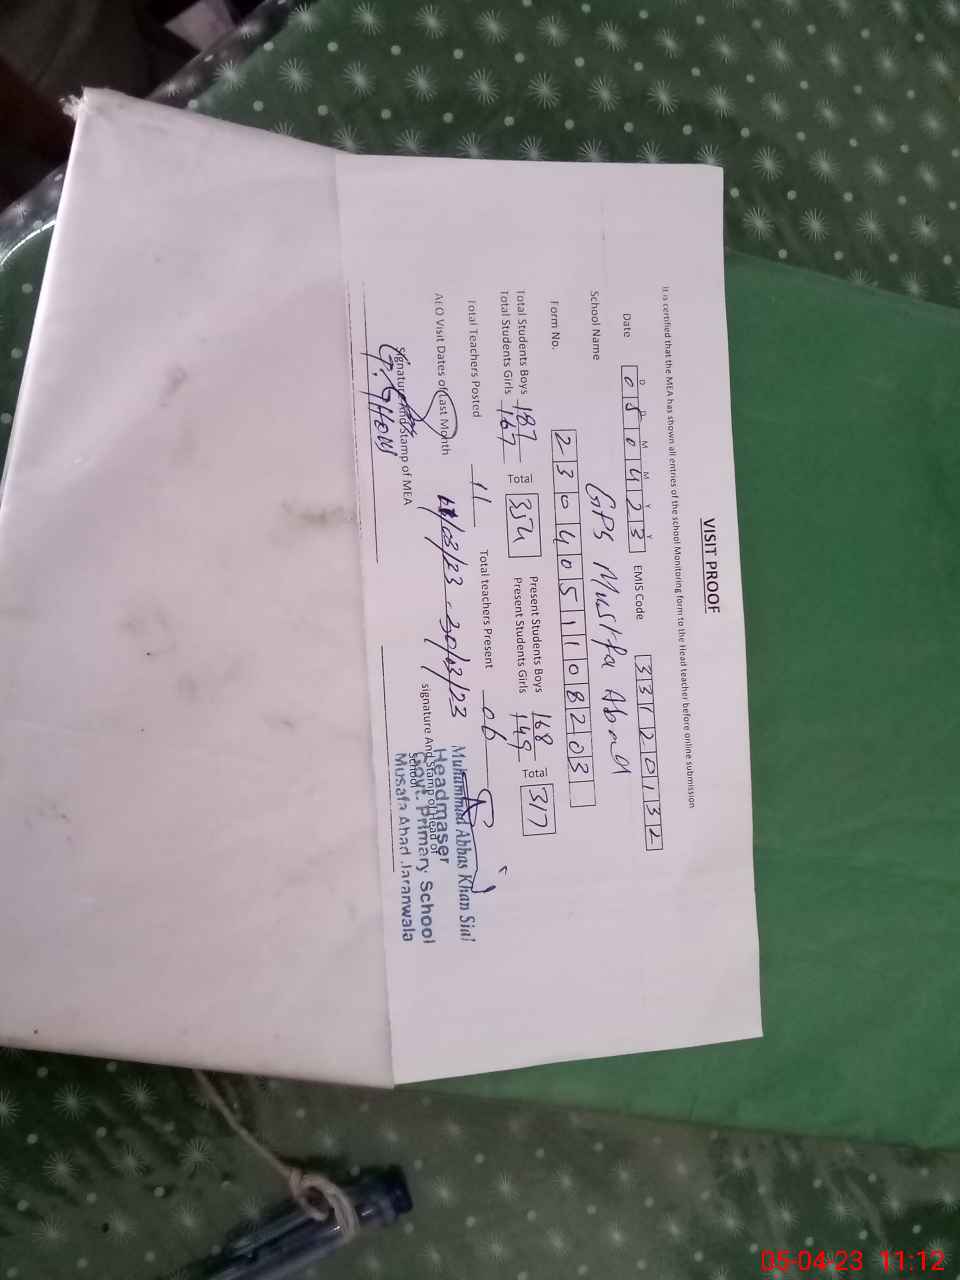 VISIT PROOF
It is certified that the MEA has shown all entries of the school Monitoring form to the Head teacher before online submission
D D M M Y Y
Date 0 5 0 4 2 3 EMIS Code 3 3 1 2 0 1 3 2
School Name GPS Mustfa Abad
Form No. 2 3 0 4 0 5 1 1 0 8 2 0 3
Total Students Boys 187 Total 354 Present Students Boys 168 Total 317
Total Students Girls 167 Present Students Girls 149
Total Teachers Posted 11 Total teachers Present 06
AEO Visit Dates of Last Month /03/23 - 30/03/23
Signature And Stamp of MEA
signature And Stamp of Head of
School
Muhammad Abbas Khan Sial
Headmaser
Govt. Primary School
Musafa Abad Jaranwala
05-04-23 11:12